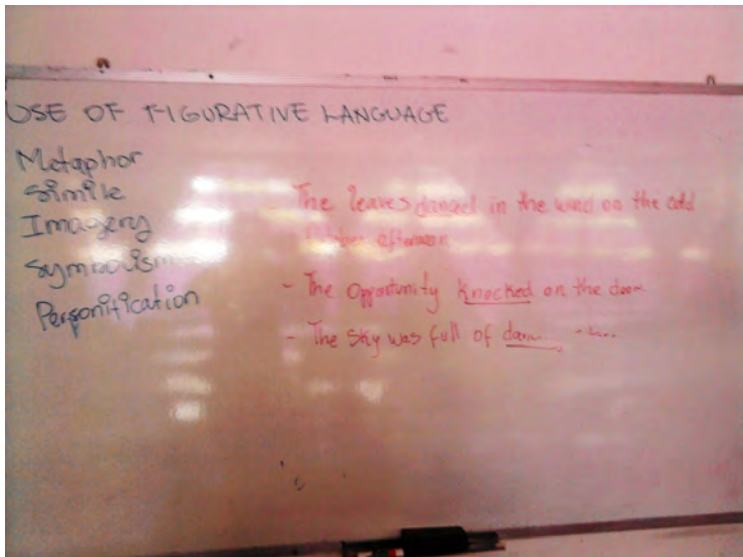 USE OF FIGURATIVE LANGUAGE
Metaphor
Simile
Imagery
Symbolism
Personification
- The leaves danced in the wind on the cold
October afternoon
- The Opportunity knocked on the door
- The Sky was full of